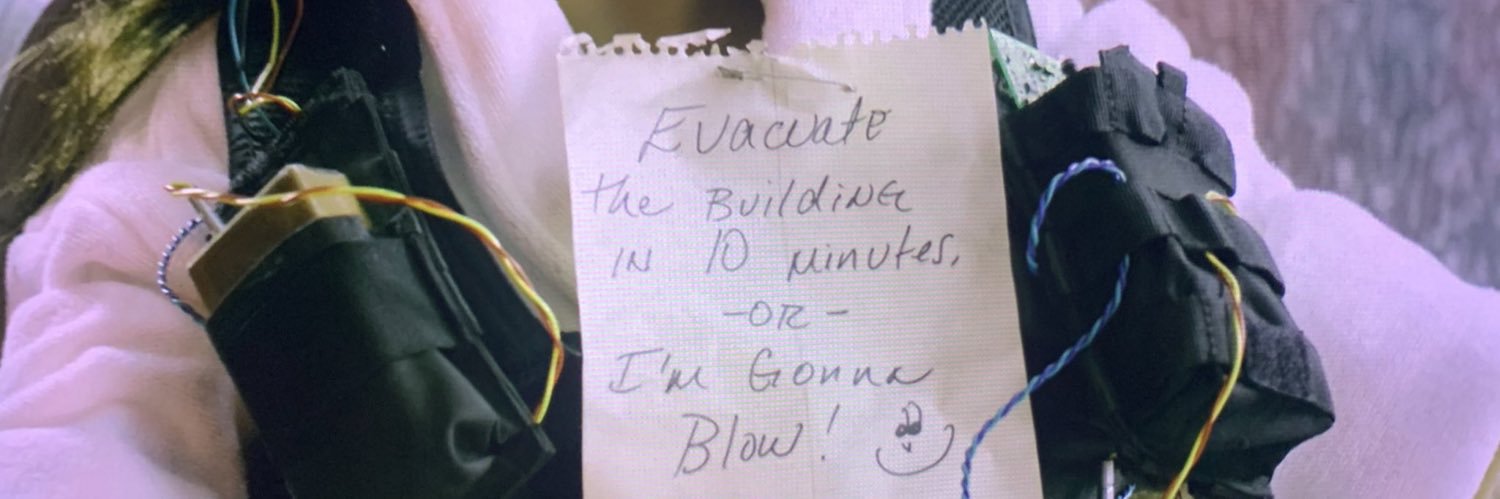 Evacuate
the Building
in 10 minutes,
-OR-
I'm Gonna
Blow!